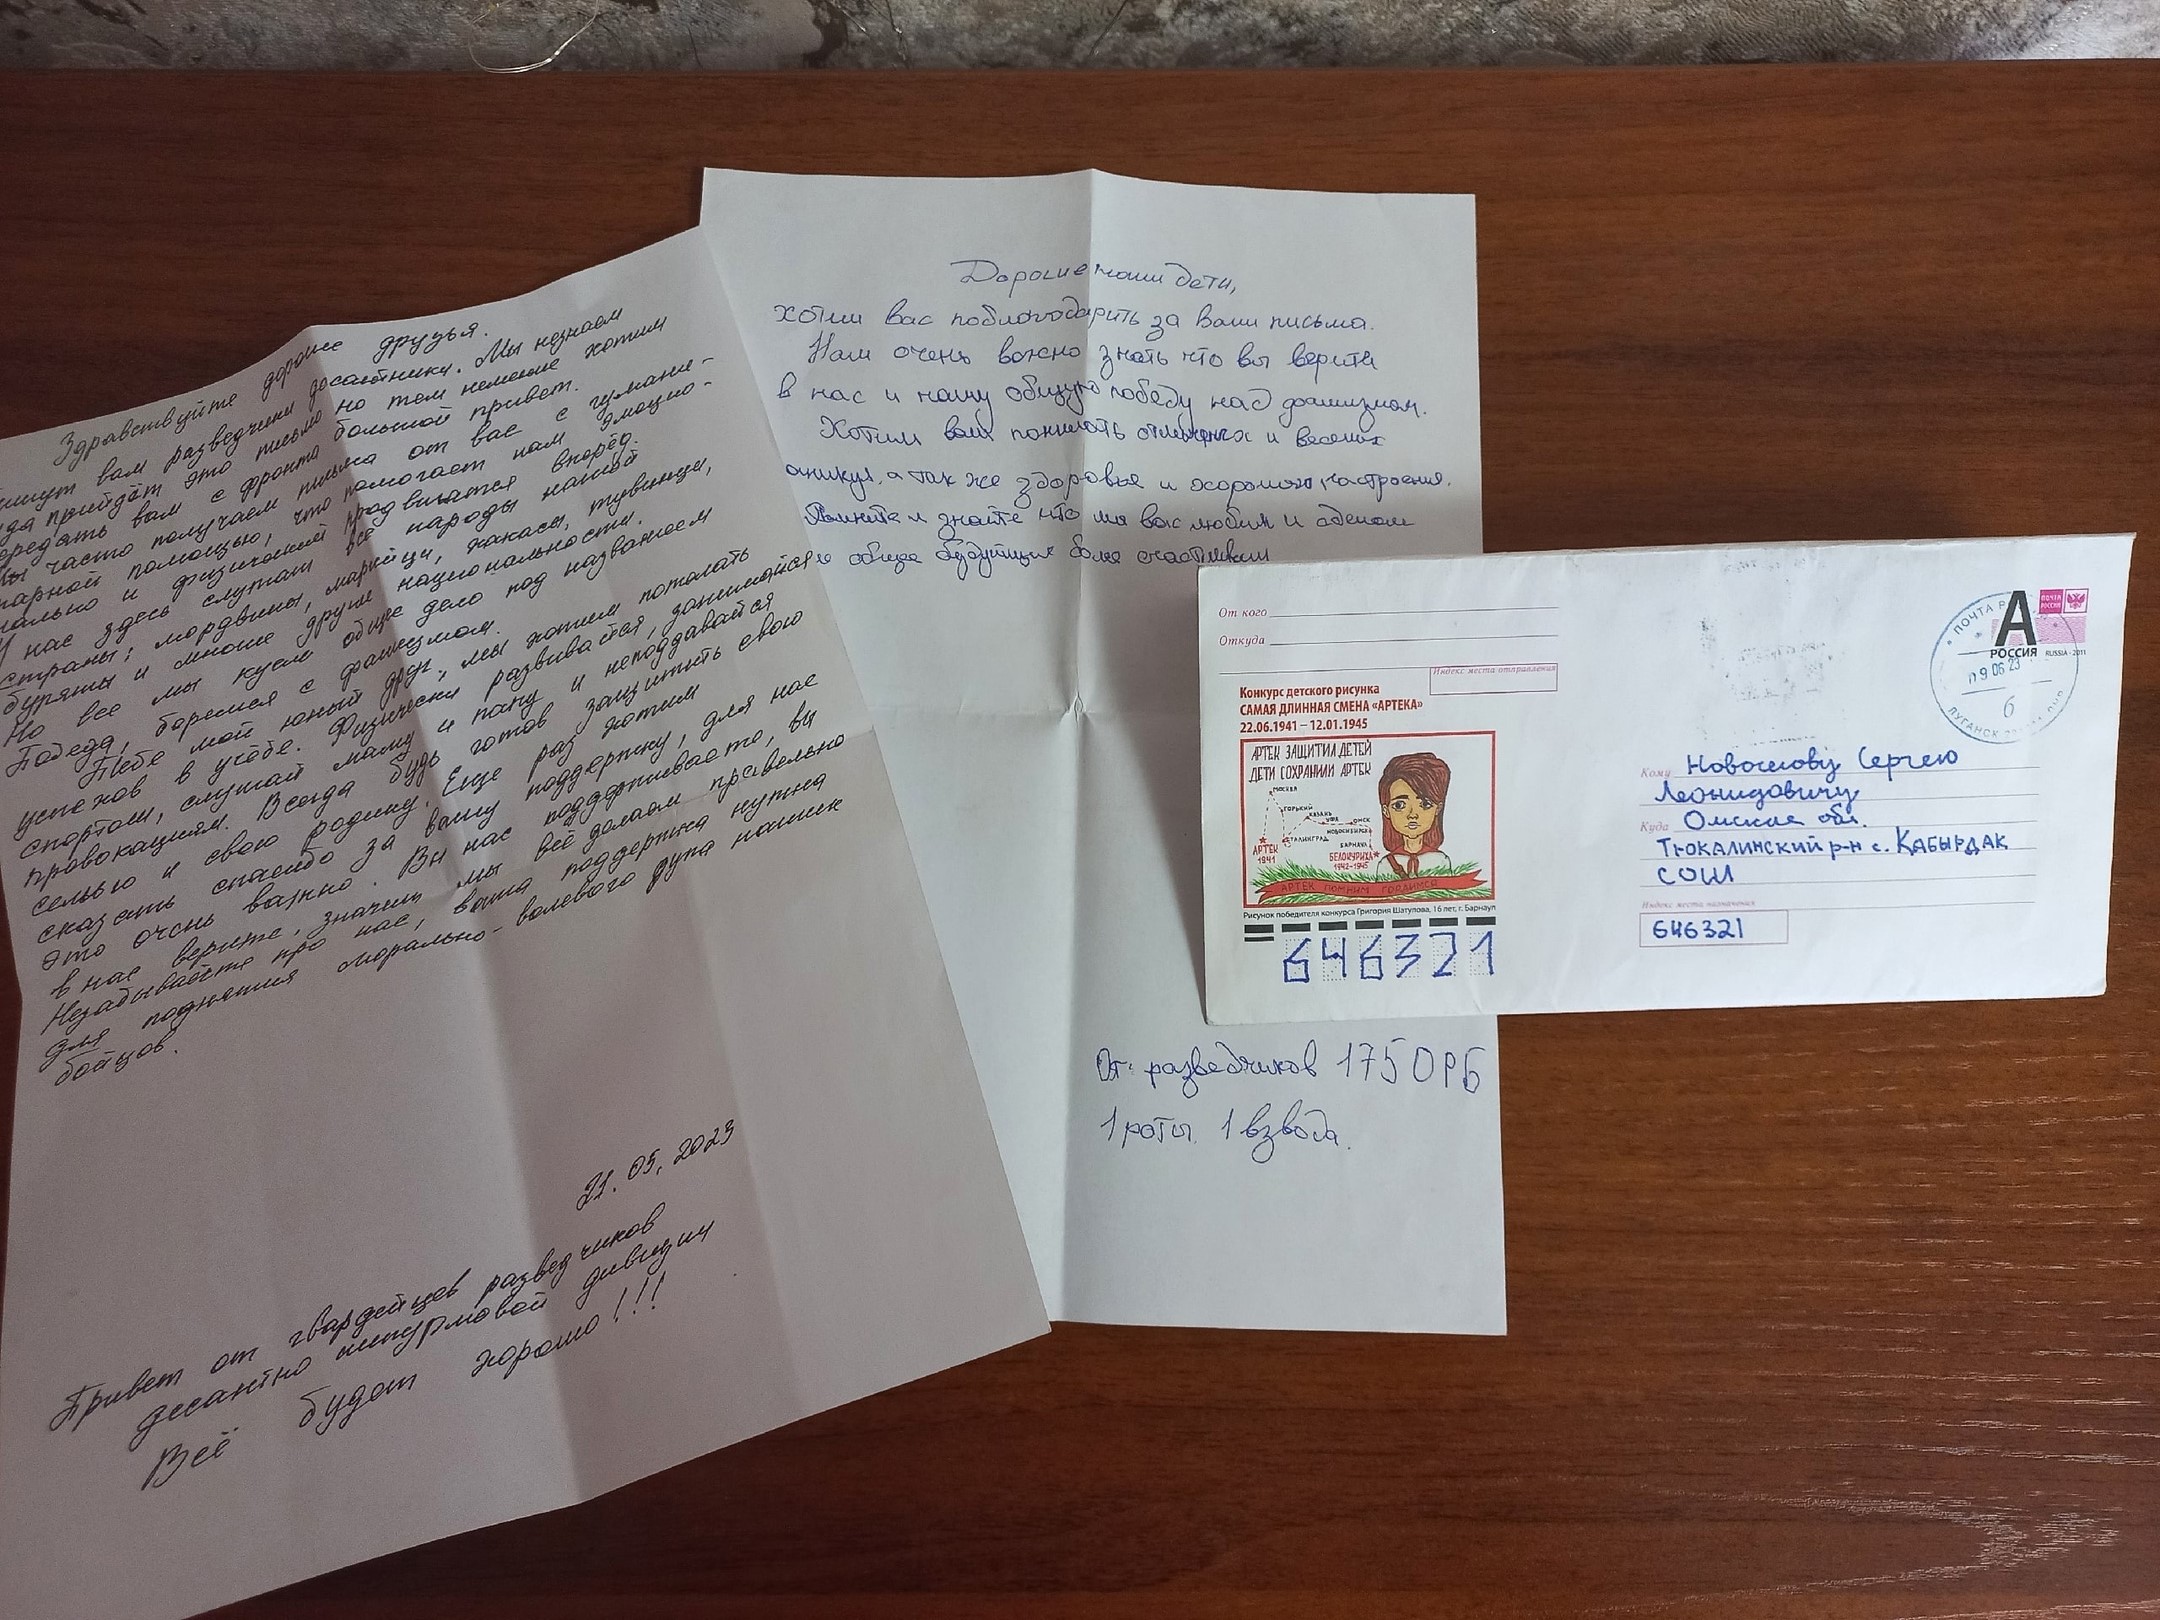 Здравствуйте дорогие друзья.
пишут вам разведчики десантники. Мы незнаем
куда прийдёт это письмо но тем немение хотим
передать вам с фронта большой привет.
Мы часто получаем письма от вас с гумани-
тарной помощью, что помогает нам эмоцио-
нально и физический продвигатся вперёд.
У нас здесь служат все народы нашей
страны; мордвины, марийци, хакасы, тувинци,
буряты и многие другие национальности.
Но все мы куем общее дело под названием
Победа, боремся с фашизмом.
Тебе мой юный друг, мы хотим пожелать
успехов в учёбе. Физически развивайся, занимайся
спортом, слушай маму и папу и неподдавайся
провокациям. Всегда будь готов защитить свою
семью и свою родину. Еще раз хотим
сказать спасибо за вашу поддержку, для нас
это очень важно. Вы нас поддерживаете, вы
в нас верите, значит мы всё делаем правельно
Незабывайте про нас, ваша поддержка нужна
для поднятия морально-волевого духа наших
бойцов.
21.05.2023
Привет от гвардейцев разведчиков
десантно штурмовой дивизии
Всё будет хорошо!!!
Дорогие наши дети,
хотим вас поблагодарить за ваши письма.
Нам очень важно знать что вы верите
в нас и нашу общую победу над фашизмом.
Хотим вам пожелать отличных и веселых
аникул, а так же здоровья и хорошего настроения.
Помните и знайте что мы вас любим и сделаем
е общее будущие более счастливым
От: разведчиков 175 ОРБ
1 роты 1 взвода.
От кого
Откуда
Индекс места отправления
Конкурс детского рисунка
САМАЯ ДЛИННАЯ СМЕНА «АРТЕКА»
22.06.1941 – 12.01.1945
АРТЕК ЗАЩИТИЛ ДЕТЕЙ
ДЕТИ СОХРАНИЛИ АРТЕК
МОСКВА
ГОРЬКИЙ
КАЗАНЬ
УФА
ОМСК
НОВОСИБИРСК
СТАЛИНГРАД
БАРНАУЛ
АРТЕК
1941
БЕЛОКУРИХА
1942-1945
АРТЕК ПОМНИМ ГОРДИМСЯ
Рисунок победителя конкурса Григория Шатулова, 16 лет, г. Барнаул
646321
ПОЧТА РОССИИ
А
РОССИЯ RUSSIA - 2011
ПОЧТА
09 06 23
6
ЛУГАНСК
Кому Новоселову Сергею
Леонидовичу
Куда Омская обл.
Тюкалинский р-н с. Кабырдак
СОШ
Индекс места назначения
646321